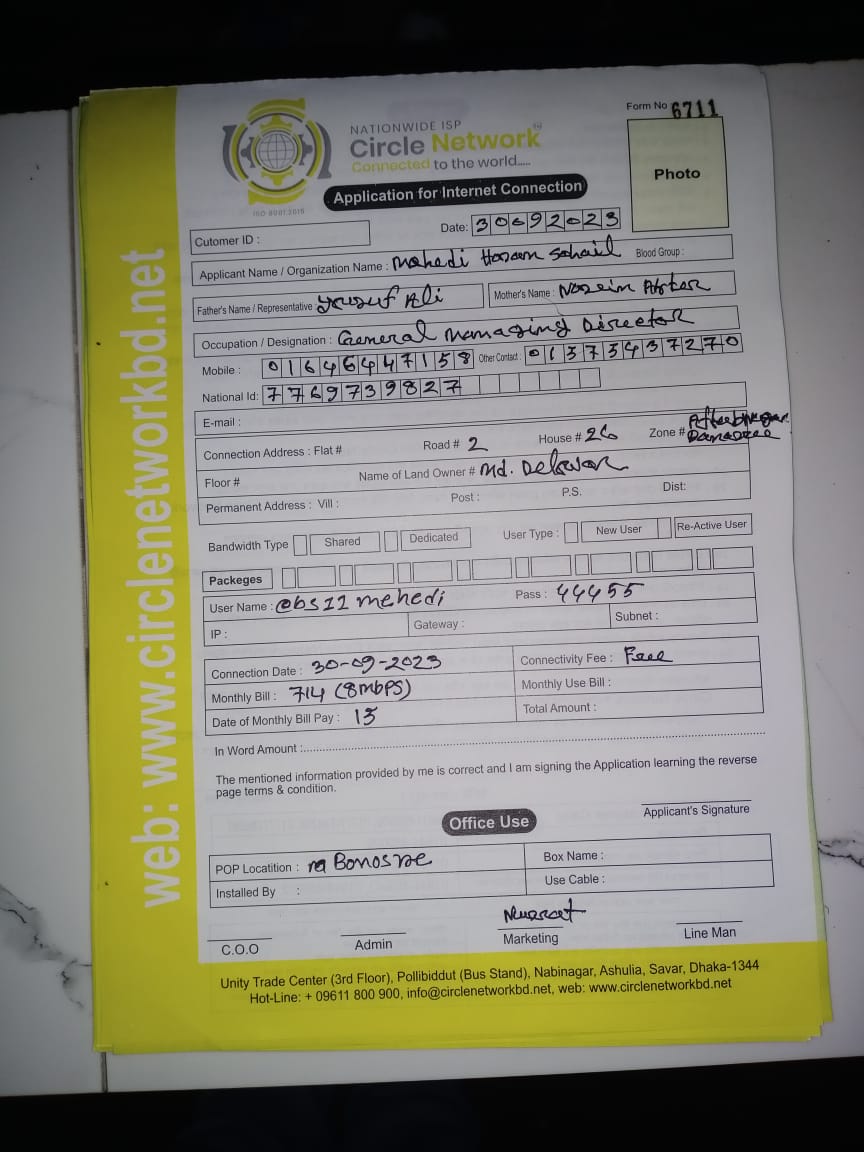 Form No 6711
NATIONWIDE ISP
Circle Network
TM
Connected to the world.....
ISO 9001:2015
Photo
Application for Internet Connection
Cutomer ID :
Date: 30092023
Applicant Name / Organization Name : Mahedi Hasan Sohail Blood Group :
Father's Name / Representative : Yousuf Ali Mother's Name : Nazim Akter
Occupation / Designation : General Managing Director
Mobile : 01646447158 Other Contact : 01375437270
National Id: 7769739827
E-mail :
Connection Address : Flat # Road # 2 House # 26 Zone # Aftabnagar
Floor # Name of Land Owner # Md. Delwar
Permanent Address : Vill : Post : P.S. Dist:
Bandwidth Type Shared Dedicated User Type : New User Re-Active User
Packeges
User Name : @bs11mehedi Pass : 44455
IP : Gateway : Subnet :
Connection Date : 30-09-2023 Connectivity Fee : Free
Monthly Bill : 714 (8mbps) Monthly Use Bill :
Date of Monthly Bill Pay : 15 Total Amount :
In Word Amount :
The mentioned information provided by me is correct and I am signing the Application learning the reverse
page terms & condition.
Applicant's Signature
Office Use
POP Locatition : Box Name :
Installed By : Use Cable :
Nusrat
C.O.O Admin Marketing Line Man
Unity Trade Center (3rd Floor), Pollibiddut (Bus Stand), Nabinagar, Ashulia, Savar, Dhaka-1344
Hot-Line: + 09611 800 900, info@circlenetworkbd.net, web: www.circlenetworkbd.net
web: www.circlenetworkbd.net